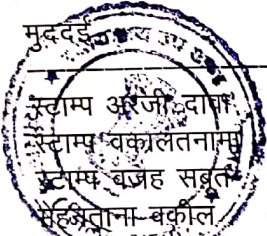 मुददई
स्टाम्प अरजी दावा
स्टाम्प वकालतनामा
स्टाम्प वजह सबूत
मेहनताना वकील